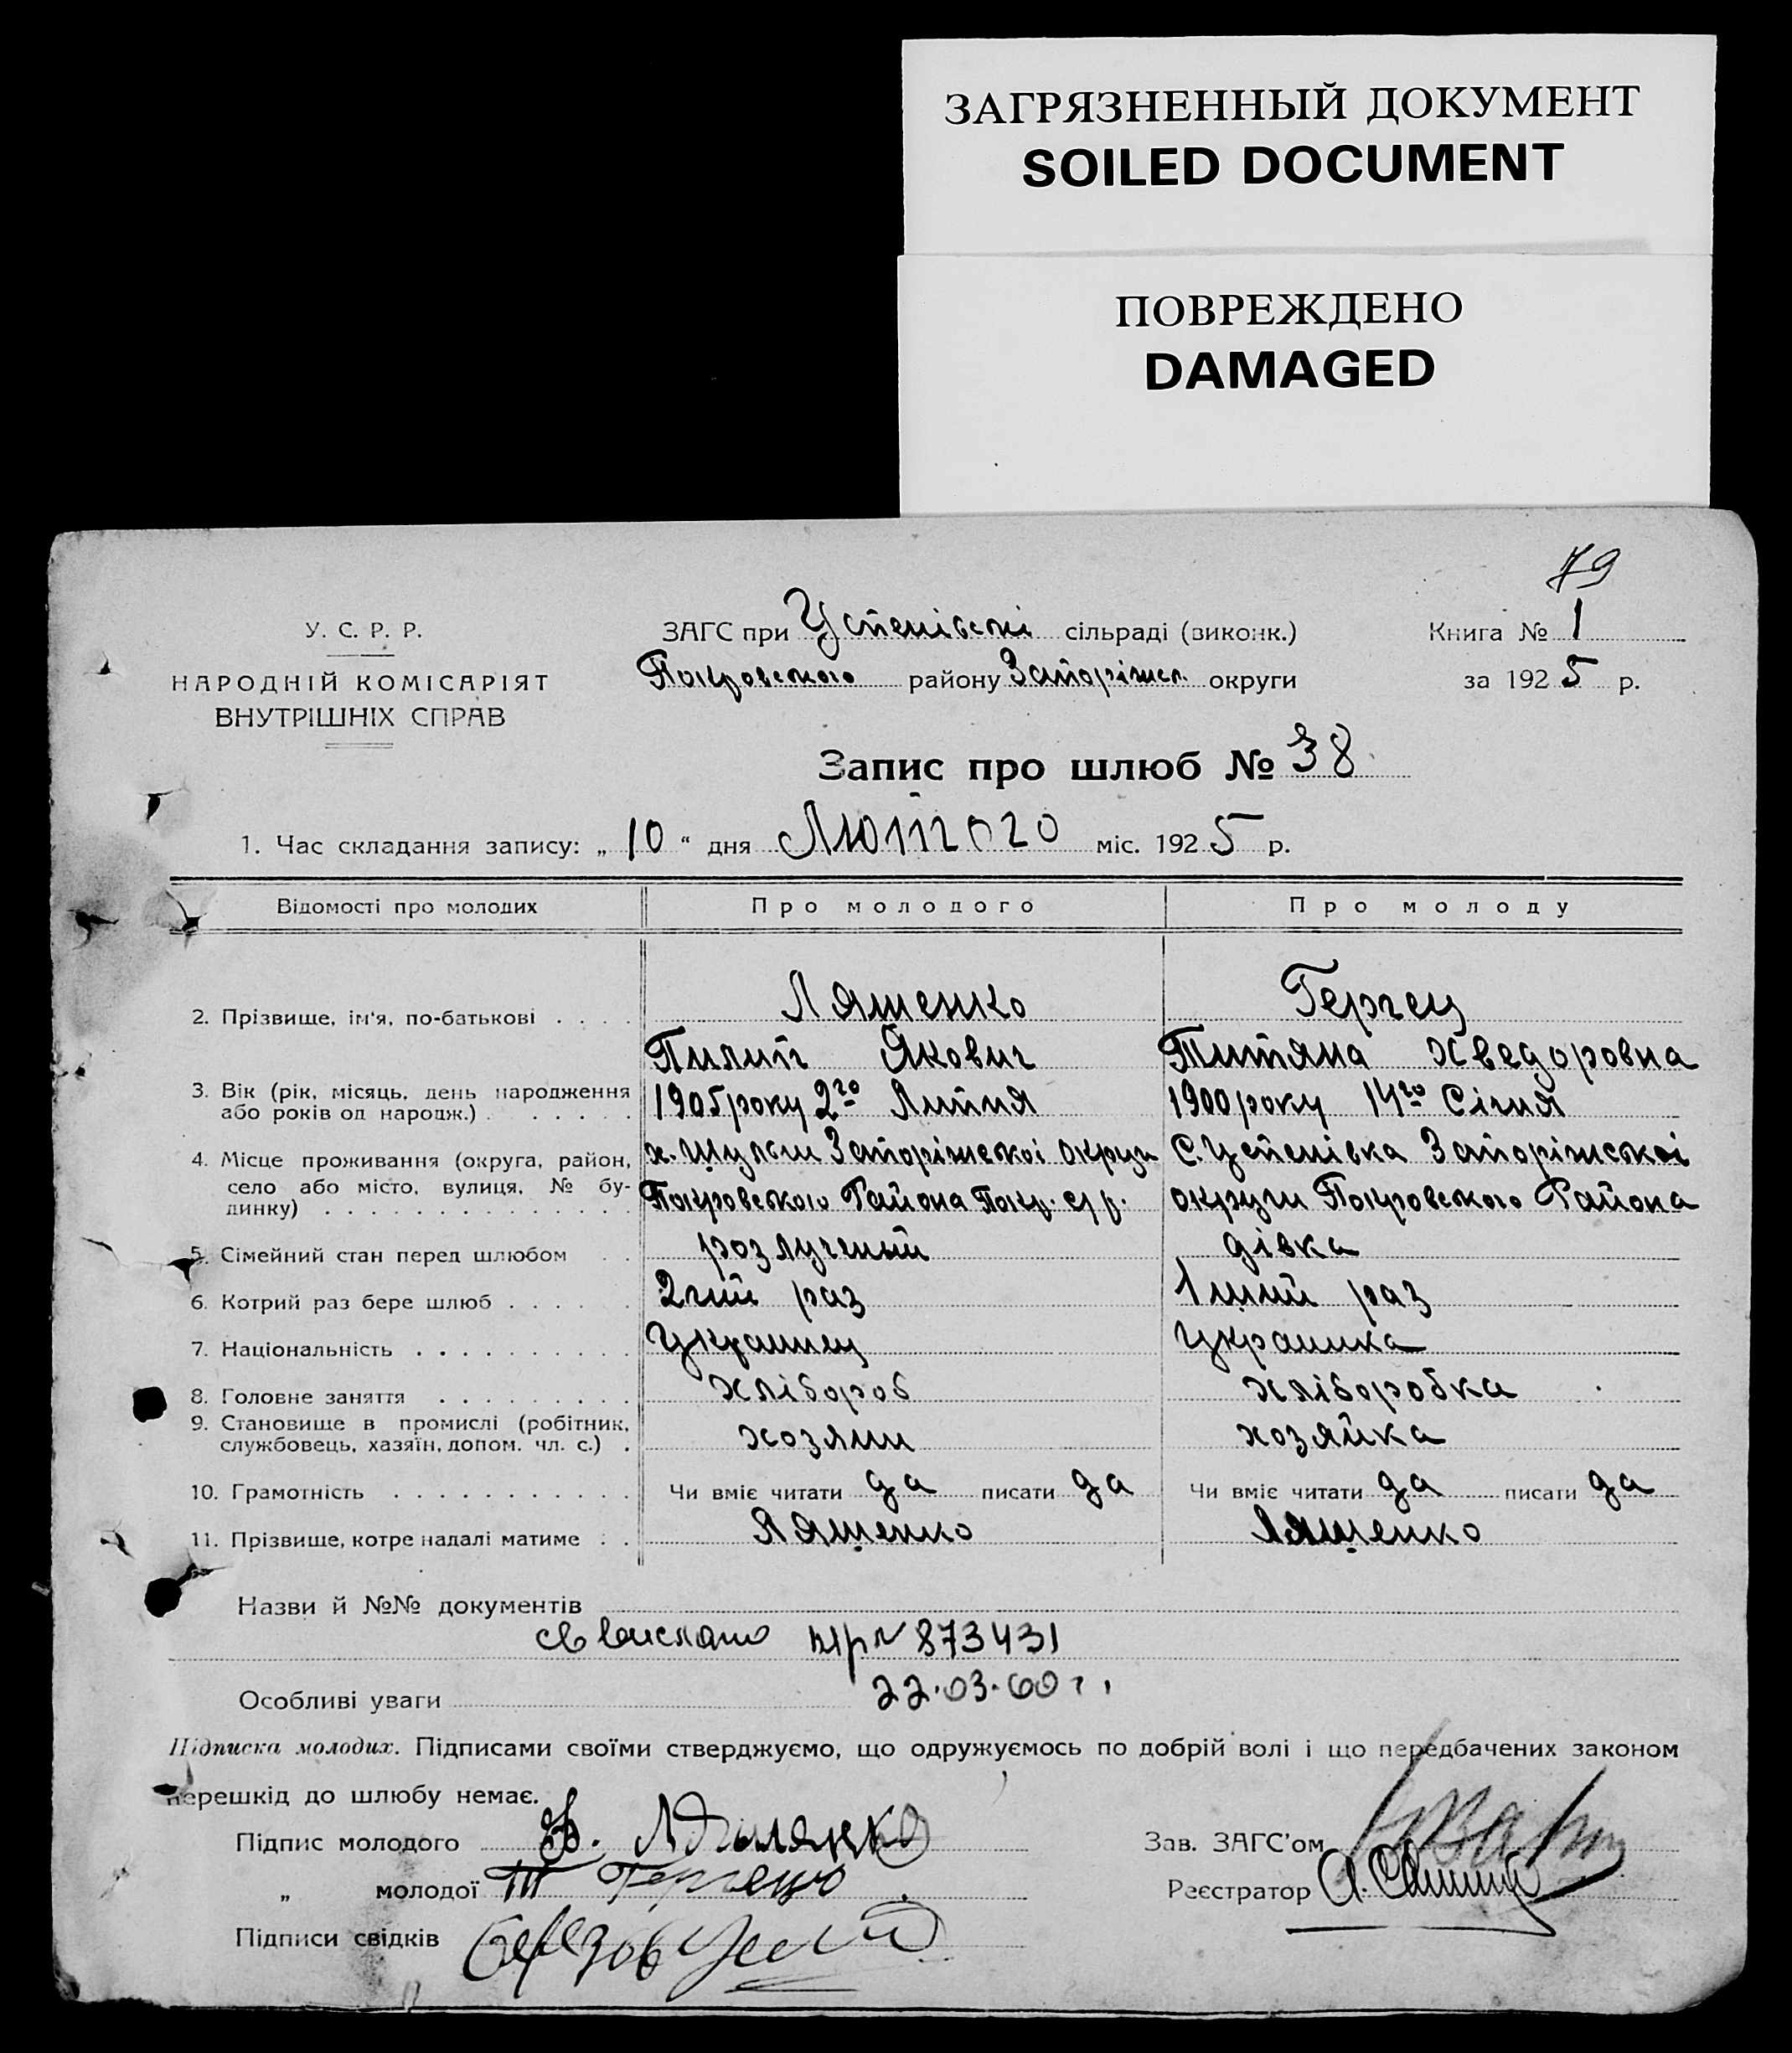 ЗАГРЯЗНЕННЫЙ ДОКУМЕНТ
SOILED DOCUMENT
ПОВРЕЖДЕНО
DAMAGED
79
У. С. Р. Р.
НАРОДНІЙ КОМІСАРІЯТ
ВНУТРІШНІХ СПРАВ
ЗАГС при Успенівскі сільраді (виконк.)
Покровського району Запоріжс. округи
Книга № 1
за 1925 р.
Запис про шлюб № 38
1. Час складання запису: „ 10 “ дня Лютого міс. 1925 р.
Відомості про молодих Про молодого Про молоду
2. Прізвище, ім'я, по-батькові . . . . Ляшенко Герчец
Пилип Якович Титяна Хведоровна
3. Вік (рік, місяць, день народження
або років од народж.) . . . . . . 1905 року 2го Липня 1900 року 14го Січня
4. Місце проживання (округа, район, х. Шульги Запоріжскоі округи С. Успенівка Запоріжськоі
село або місто, вулиця, № бу-
динку) . . . . . . . . . . . . . . Покровського Района Покр. с/р. округи Покровського Района
5. Сімейний стан перед шлюбом . розлучений дівка
6. Котрий раз бере шлюб . . . . . . 2гий раз 1ший раз
7. Національність . . . . . . . . . . Украинец Украинка
8. Головне заняття . . . . . . . . . хлібороб хліборобка
9. Становище в промислі (робітник,
службовець, хазяїн, допом. чл. с.) . хозяин хозяйка
10. Грамотність . . . . . . . . . . . Чи вміє читати да писати да Чи вміє читати да писати да
11. Прізвище, котре надалі матиме : . Лященко Лященко
Назви й №№ документів
873431
Особливі уваги 22.03.60 г.
Підписка молодих. Підписами своїми стверджуємо, що одружуємось по добрій волі і що передбачених законом
перешкід до шлюбу немає.
Підпис молодого
„ молодої Т
Підписи свідків
Зав. ЗАГС'ом
Реєстратор А.